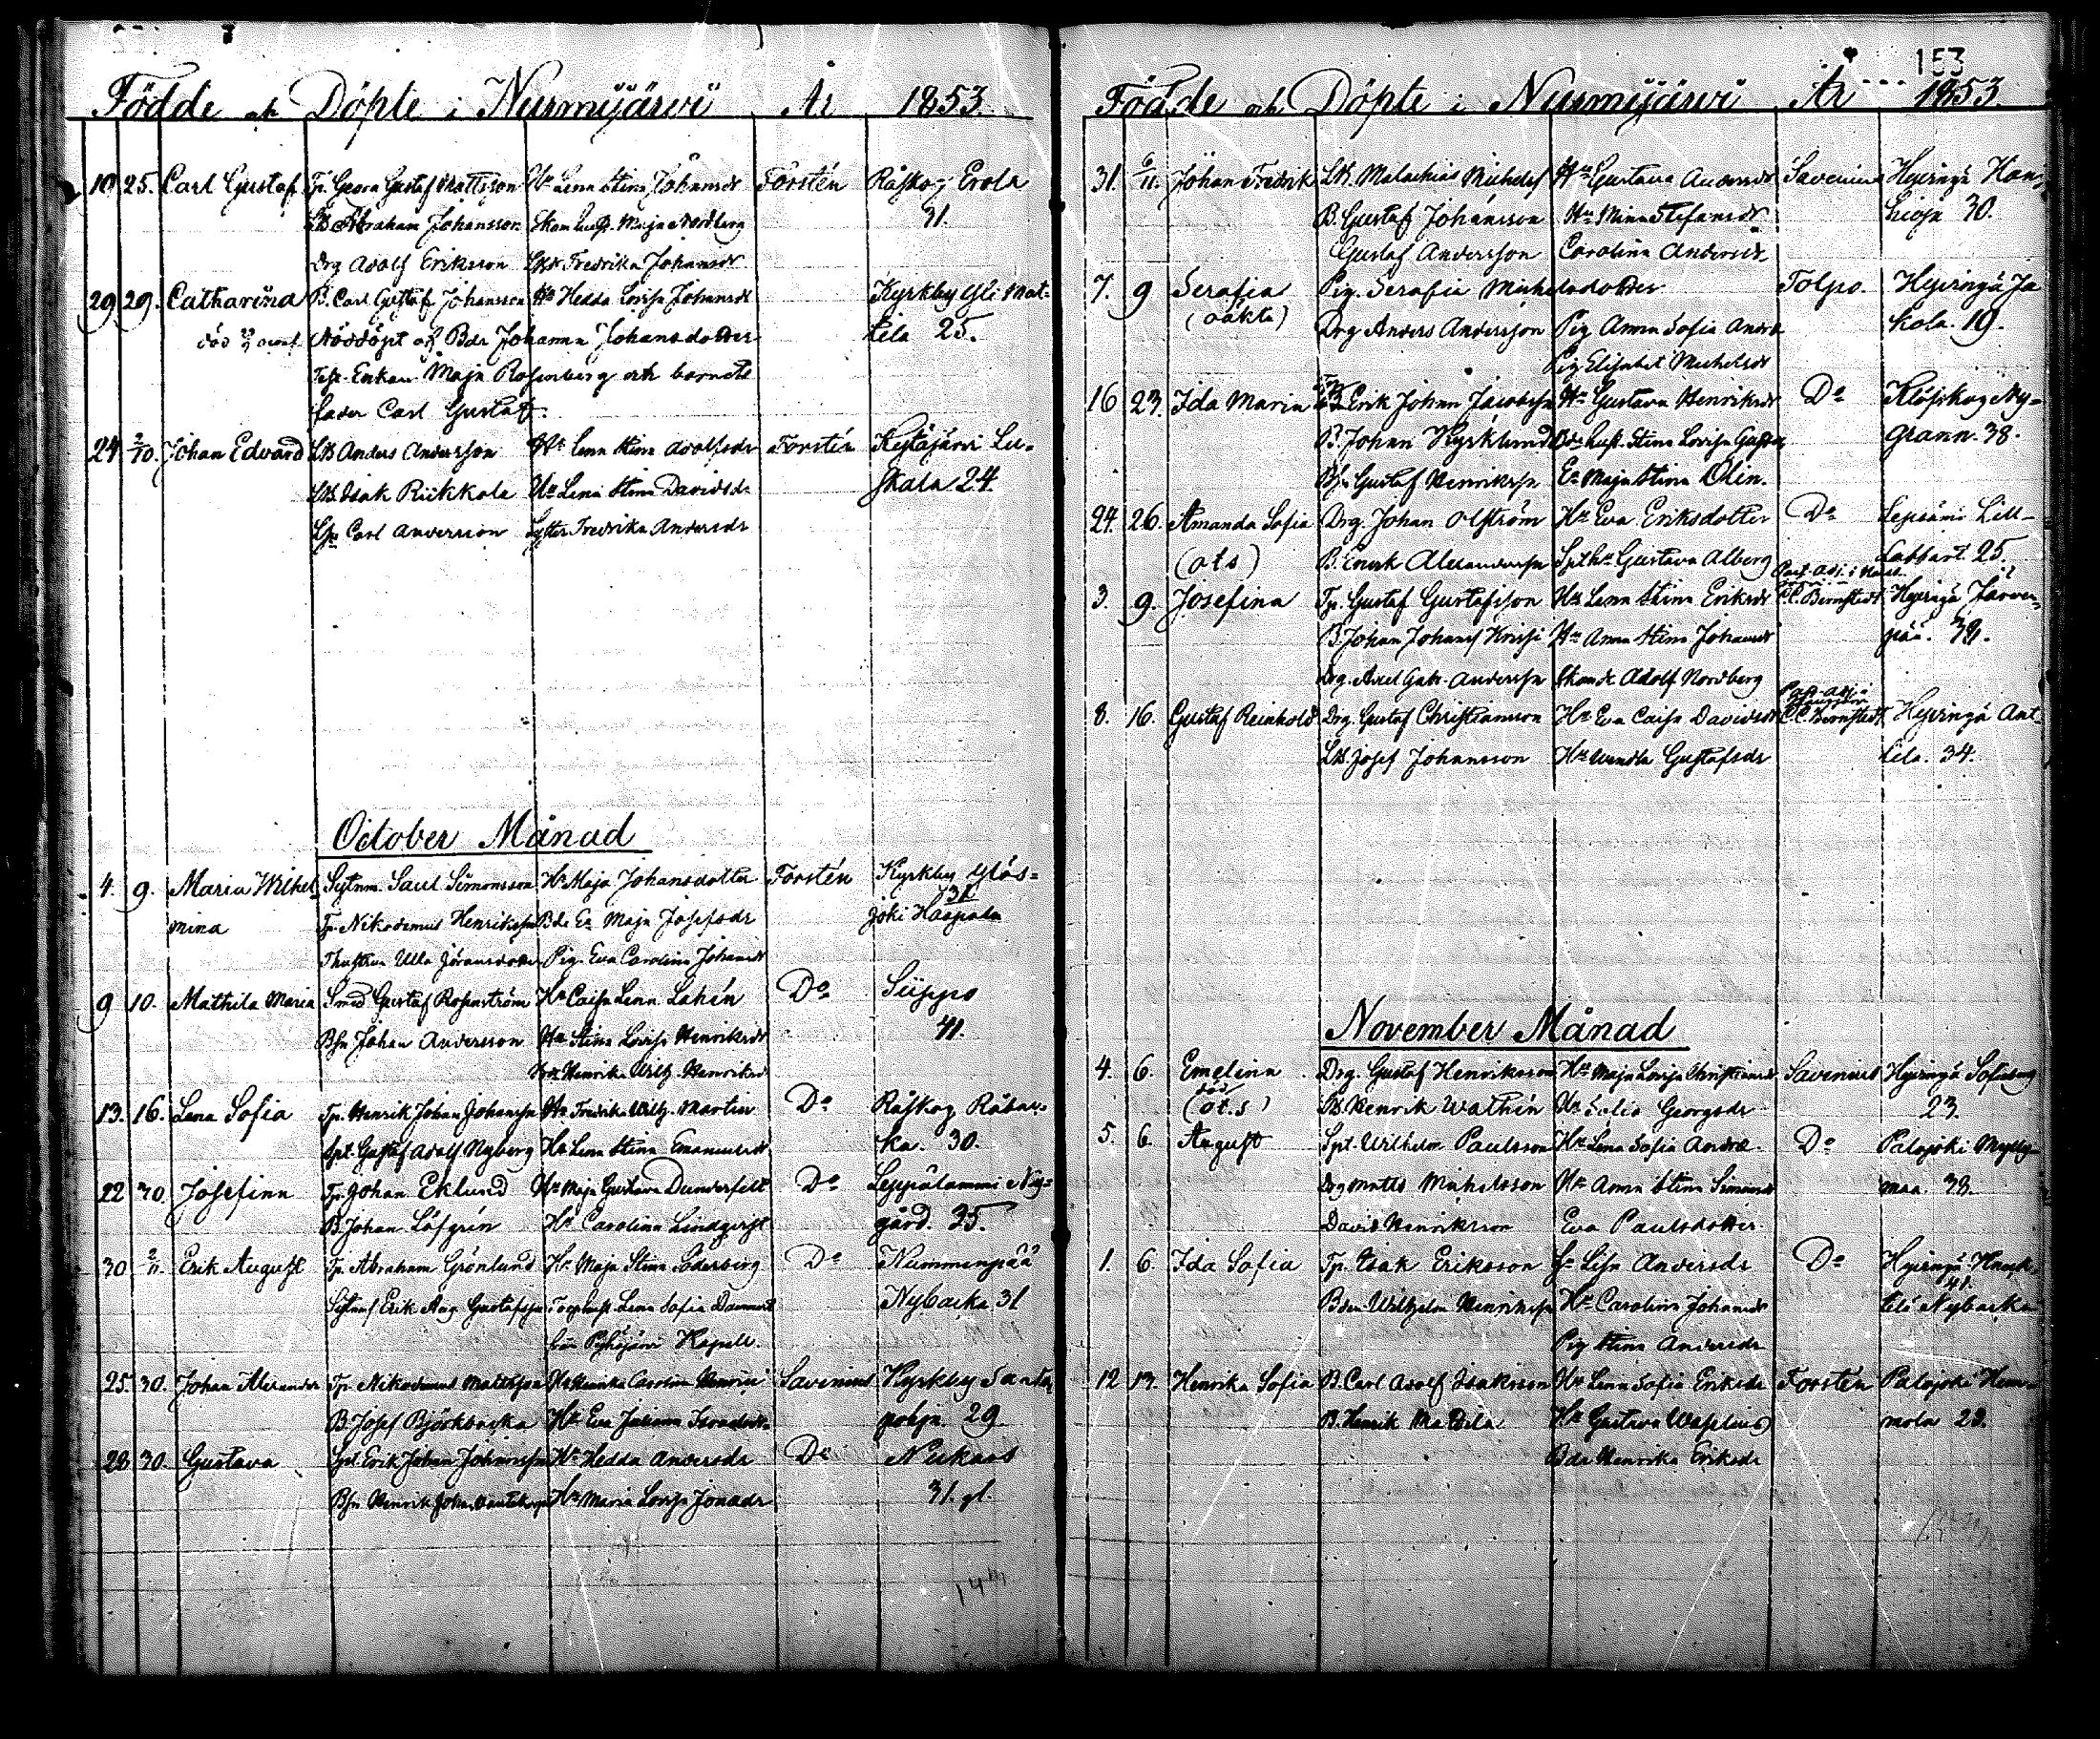 Födde och Döpte i Nurmijärwi År 1853.
10 25. Carl Gustaf Tp. Georg Gustaf Mattsson Hu Lena Stina Johansdr Forstén Råskog Erola
LB Abraham Johansson Maja Nordberg 31.
Drg Adolf Eriksson Fredrika Johansdr
29 29. Catharina B. Carl Gustaf Johansson Hu Hedda Lovisa Johansdr Kyrkby Yli Mat-
död Nöddöpt af Bdr Johanna Johansdotter tila 25.
Enkan Maja Rosenberg och barnets
fader Carl Gustaf.
24 2/10. Johan Edvard LB Anders Andersson Hu Lena Stina Adolfsdr Forstén
LB Isak Riekkola Hu Lena Stina Davidsdr skala 24.
Carl Andersson Fredrika Andersdr
October Månad
4. 9. Maria Wilhel- Sytnm. Saul Simonsson Hu Maja Johansdotter Forstén Kyrkby Ylös-
31
mina Tp. Nikodemus Henriksson Bde En Maja Josefsdr joki Haapala
Ulla Göransdotter Pig. Eva Carolina Johansdr
9 10. Mathila Maria Smd. Gustaf Rosenström Hu Caisa Lena Lahén Do Siippo
Bsn Johan Andersson Hu Stina Lovisa Henriksdr 41.
Henrika Wilh. Henriksdr
13. 16. Lena Sofia Tp. Henrik Johan Johansson Hu Fredrika Wilh. Martin Do Råskog
Spt. Gustaf Adolf Nyberg Hu Lena Stina Emanuelsdr ka. 30.
22 30. Josefina Tp. Johan Eklund Hu Maja Gustava Dunderfelt Do Leppälammi Ny-
B. Johan Löfgrén Hu Carolina Lindqvist gård. 35.
30 2/11 Erik August Tp. Abraham Grönlund Hu Maja Stina Söderberg Do Nummenpää
Erik Aug. Gustafsson Lena Sofia Nybacka 31
från Pyhäjärvi Kapell.
25. 30. Johan Alexander Tp. Nikodemus Mattsson Hu Henrika Carolina Savenius Kyrkby
B. Josef Björkbacka Hu Eva Juliana pohja. 29
28 30. Gustava Spt. Erik Johan Johansson Hu Hedda Andersdr Do Nukars
Bsn Henrik Johan Hu Maria Lovisa Jonaedr 31. gl.
144
153
Födde och Döpte i Nurmijärwi År 1853.
31. 6/11. Johan Fredrik LB. Malachias Michelss Hu Gustava Andersdr Savenius Hyvingä Han-
B. Gustaf Johansson Hu Minna Stefansdr kioja 30.
Gustaf Andersson Carolina Andersdr
7. 9 Serafia Pig. Serafia Michelsdotter Tolpo. Hyvingä Ja
(oäkta) Drg Anders Andersson Pig Anna Sofia Andrae kola. 19.
Pig Elisabet Michelsdr
16 23. Ida Maria Erik Johan Jacobsson Hu Gustava Henriksdr Do Klöfskog Ny-
B. Johan Kyrklund Stina Lovisa grann. 38.
Bsn Gustaf Henriksson En Maja Stina Olin.
24. 26. Amanda Sofia Drg. Johan Olström Hu Eva Eriksdotter Do Lepsämä Lill-
(ots) B. Enok Alexandersson Spt.hu Gustava Alberg Labbart. 25
3. 9. Josefina Tp. Gustaf Gustafsson Hu Lena Stina Eriksdr C.C. Bernstedt Hyvingä Järven-
B. Johan Johanss Krissi Hu Anna Stina Johansdr pää. 38.
Drg. Axel Gab. Andersson Adolf Nordberg
8. 16. Gustaf Reinhold Drg. Gustaf Christiansson Hu Eva Caisa Davidsdr C.C. Bernstedt Hyvingä Ant
LB. Josef Johansson Hu Wendla Gustafsdr tila. 34.
November Månad
4. 6. Emelina Drg. Gustaf Henriksson Hu Maja Lovisa Christiansdr Savenius Hyvingä
död
(ots) B. Henrik Wathén Hu Georgsdr 23.
5. 6. August Spt. Wilhelm Paulsson Hu Lena Sofia Andrae Do Palojoki Mylly-
Drg Matts Michelsson Hu Anna Stina Simonsdr maa. 33.
David Henriksson Eva Paulsdotter
1. 6. Ida Sofia Tp. Isak Eriksson Lisa Andersdr Do Hyvingä
41.
Wilhelm Henriksson Hu Carolina Johansdr Nybacka
Pig Stina Andersdr
12 13. Henrika Sofia B. Carl Adolf Isaksson Hu Lena Sofia Eriksdr Forstén Palojoki Hem-
B. Henrik Mattila Hu Gustava Waselius mola 23.
Bdr Henrika Eriksdr